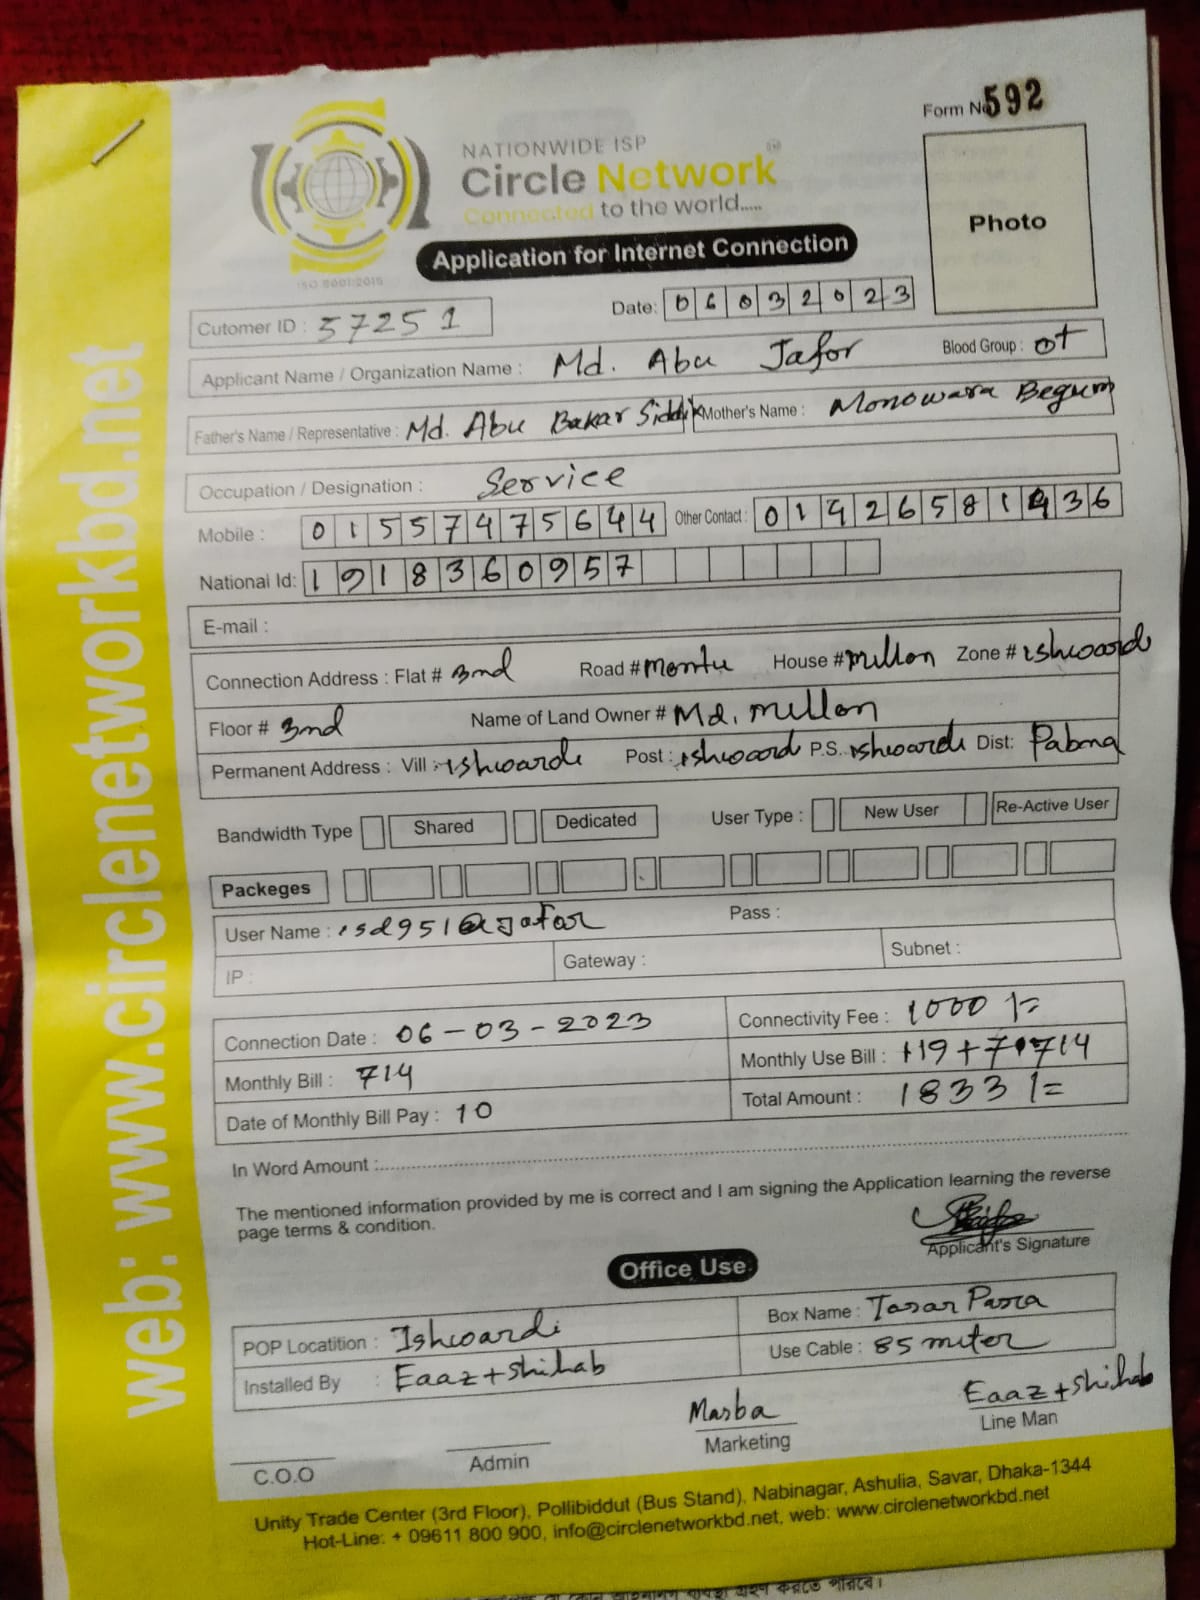 Form No 592
NATIONWIDE ISP
Circle Network
Connected to the world.....
ISO 9001:2015
Application for Internet Connection
Photo
Date: 06032023
Cutomer ID : 57251
Applicant Name / Organization Name : Md. Abu Jafor Blood Group : O+
Father's Name / Representative : Md. Abu Bakar Siddik Mother's Name : Monowara Begum
Occupation / Designation : Service
Mobile : 01557475644 Other Contact :
National Id: 1918360957
E-mail :
Connection Address : Flat # 3nd Road # Montu House # millon Zone # ishwardi
Floor # 3nd Name of Land Owner # Md. millon
Permanent Address : Vill : ishwardi Post : ishward P.S. ishwardi Dist: Pabna
Bandwidth Type Shared Dedicated User Type : New User Re-Active User
Packeges
User Name : isd951@jafar Pass :
IP : Gateway : Subnet :
Connection Date : 06-03-2023 Connectivity Fee : 1000/=
Monthly Bill : 714 Monthly Use Bill : 119+714
Date of Monthly Bill Pay : 10 Total Amount : 1833/=
In Word Amount :
The mentioned information provided by me is correct and I am signing the Application learning the reverse
page terms & condition.
Applicant's Signature
Office Use
POP Locatition : Ishwardi Box Name : Tasar Para
Installed By : Eaaz+Shihab Use Cable : 85 miter
Masba Eaaz+Shihab
C.O.O Admin Marketing Line Man
Unity Trade Center (3rd Floor), Pollibiddut (Bus Stand), Nabinagar, Ashulia, Savar, Dhaka-1344
Hot-Line: + 09611 800 900, info@circlenetworkbd.net, web: www.circlenetworkbd.net
web: www.circlenetworkbd.net
করতে পারবে।